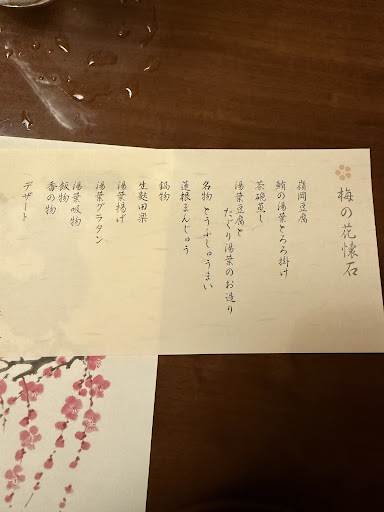 梅の花懐石
嶺岡豆腐
鮪の湯葉とろろ掛け
茶碗蒸し
湯葉豆腐と
たぐり湯葉のお造り
名物 とうふしゅうまい
蓮根まんじゅう
鍋物
生麩田楽
湯葉揚げ
湯葉グラタン
湯葉吸物
飯物
香の物
デザート